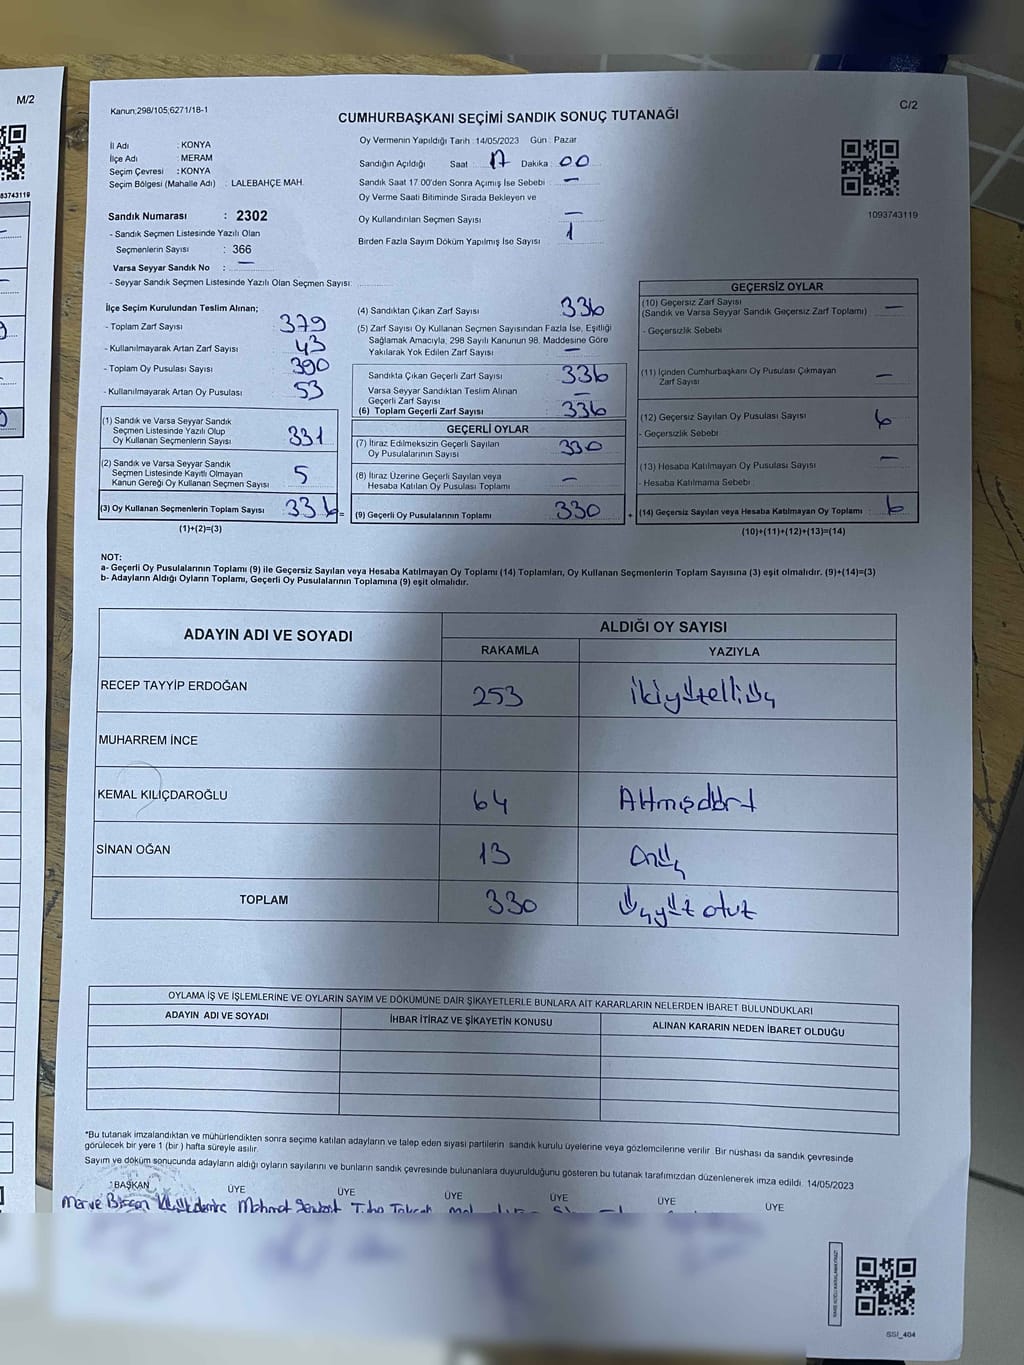 M/2
83743119
Kanun;298/105;6271/18-1
C/2
CUMHURBAŞKANI SEÇİMİ SANDIK SONUÇ TUTANAĞI
İl Adı : KONYA
İlçe Adı : MERAM
Seçim Çevresi : KONYA
Seçim Bölgesi (Mahalle Adı) : LALEBAHÇE MAH.
Sandık Numarası : 2302
- Sandık Seçmen Listesinde Yazılı Olan
Seçmenlerin Sayısı : 366
Varsa Seyyar Sandık No : —
- Seyyar Sandık Seçmen Listesinde Yazılı Olan Seçmen Sayısı:
Oy Vermenin Yapıldığı Tarih : 14/05/2023 Gün : Pazar
Sandığın Açıldığı Saat : 17 Dakika : 00
Sandık Saat 17.00'den Sonra Açımış İse Sebebi : —
Oy Verme Saati Bitiminde Sırada Bekleyen ve
Oy Kullandırılan Seçmen Sayısı —
Birden Fazla Sayım Döküm Yapılmış İse Sayısı 1
1093743119
İlçe Seçim Kurulundan Teslim Alınan;
- Toplam Zarf Sayısı 379
- Kullanılmayarak Artan Zarf Sayısı 43
- Toplam Oy Pusulası Sayısı 390
- Kullanılmayarak Artan Oy Pusulası 53
(1) Sandık ve Varsa Seyyar Sandık
Seçmen Listesinde Yazılı Olup
Oy Kullanan Seçmenlerin Sayısı 331
(2) Sandık ve Varsa Seyyar Sandık
Seçmen Listesinde Kayıtlı Olmayan
Kanun Gereği Oy Kullanan Seçmen Sayısı 5
(3) Oy Kullanan Seçmenlerin Toplam Sayısı 336 =
(1)+(2)=(3)
(4) Sandıktan Çıkan Zarf Sayısı : 336
(5) Zarf Sayısı Oy Kullanan Seçmen Sayısından Fazla İse, Eşitliği
Sağlamak Amacıyla, 298 Sayılı Kanunun 98. Maddesine Göre
Yakılarak Yok Edilen Zarf Sayısı : —
Sandıkta Çıkan Geçerli Zarf Sayısı : 336
Varsa Seyyar Sandıktan Teslim Alınan
Geçerli Zarf Sayısı : —
(6) Toplam Geçerli Zarf Sayısı : 336
GEÇERLİ OYLAR
(7) İtiraz Edilmeksizin Geçerli Sayılan
Oy Pusulalarının Sayısı : 330
(8) İtiraz Üzerine Geçerli Sayılan veya
Hesaba Katılan Oy Pusulası Toplamı : —
(9) Geçerli Oy Pusulalarının Toplamı : 330 +
GEÇERSİZ OYLAR
(10) Geçersiz Zarf Sayısı
(Sandık ve Varsa Seyyar Sandık Geçersiz Zarf Toplamı) : —
- Geçersizlik Sebebi
(11) İçinden Cumhurbaşkanı Oy Pusulası Çıkmayan
Zarf Sayısı : —
(12) Geçersiz Sayılan Oy Pusulası Sayısı : 6
- Geçersizlik Sebebi
(13) Hesaba Katılmayan Oy Pusulası Sayısı : —
- Hesaba Katılmama Sebebi
(14) Geçersiz Sayılan veya Hesaba Katılmayan Oy Toplamı : 6
(10)+(11)+(12)+(13)=(14)
NOT:
a- Geçerli Oy Pusulalarının Toplamı (9) ile Geçersiz Sayılan veya Hesaba Katılmayan Oy Toplamı (14) Toplamları, Oy Kullanan Seçmenlerin Toplam Sayısına (3) eşit olmalıdır. (9)+(14)=(3)
b- Adayların Aldığı Oyların Toplamı, Geçerli Oy Pusulalarının Toplamına (9) eşit olmalıdır.
ADAYIN ADI VE SOYADI ALDIĞI OY SAYISI
RAKAMLA YAZIYLA
RECEP TAYYİP ERDOĞAN 253 İkiyüzelliüç
MUHARREM İNCE
KEMAL KILIÇDAROĞLU 64 Altmışdört
SİNAN OĞAN 13 Onüç
TOPLAM 330 Üçyüz otuz
OYLAMA İŞ VE İŞLEMLERİNE VE OYLARIN SAYIM VE DÖKÜMÜNE DAİR ŞİKAYETLERLE BUNLARA AİT KARARLARIN NELERDEN İBARET BULUNDUKLARI
ADAYIN ADI VE SOYADI İHBAR İTİRAZ VE ŞİKAYETİN KONUSU ALINAN KARARIN NEDEN İBARET OLDUĞU
*Bu tutanak imzalandıktan ve mühürlendikten sonra seçime katılan adayların ve talep eden siyasi partilerin sandık kurulu üyelerine veya gözlemcilerine verilir. Bir nüshası da sandık çevresinde
görülecek bir yere 1 (bir ) hafta süreyle asılır.
Sayım ve döküm sonucunda adayların aldığı oyların sayılarını ve bunların sandık çevresinde bulunanlara duyurulduğunu gösteren bu tutanak tarafımızdan düzenlenerek imza edildi. 14/05/2023
BAŞKAN ÜYE ÜYE ÜYE ÜYE ÜYE ÜYE
Merve Mehmet
SSI_404